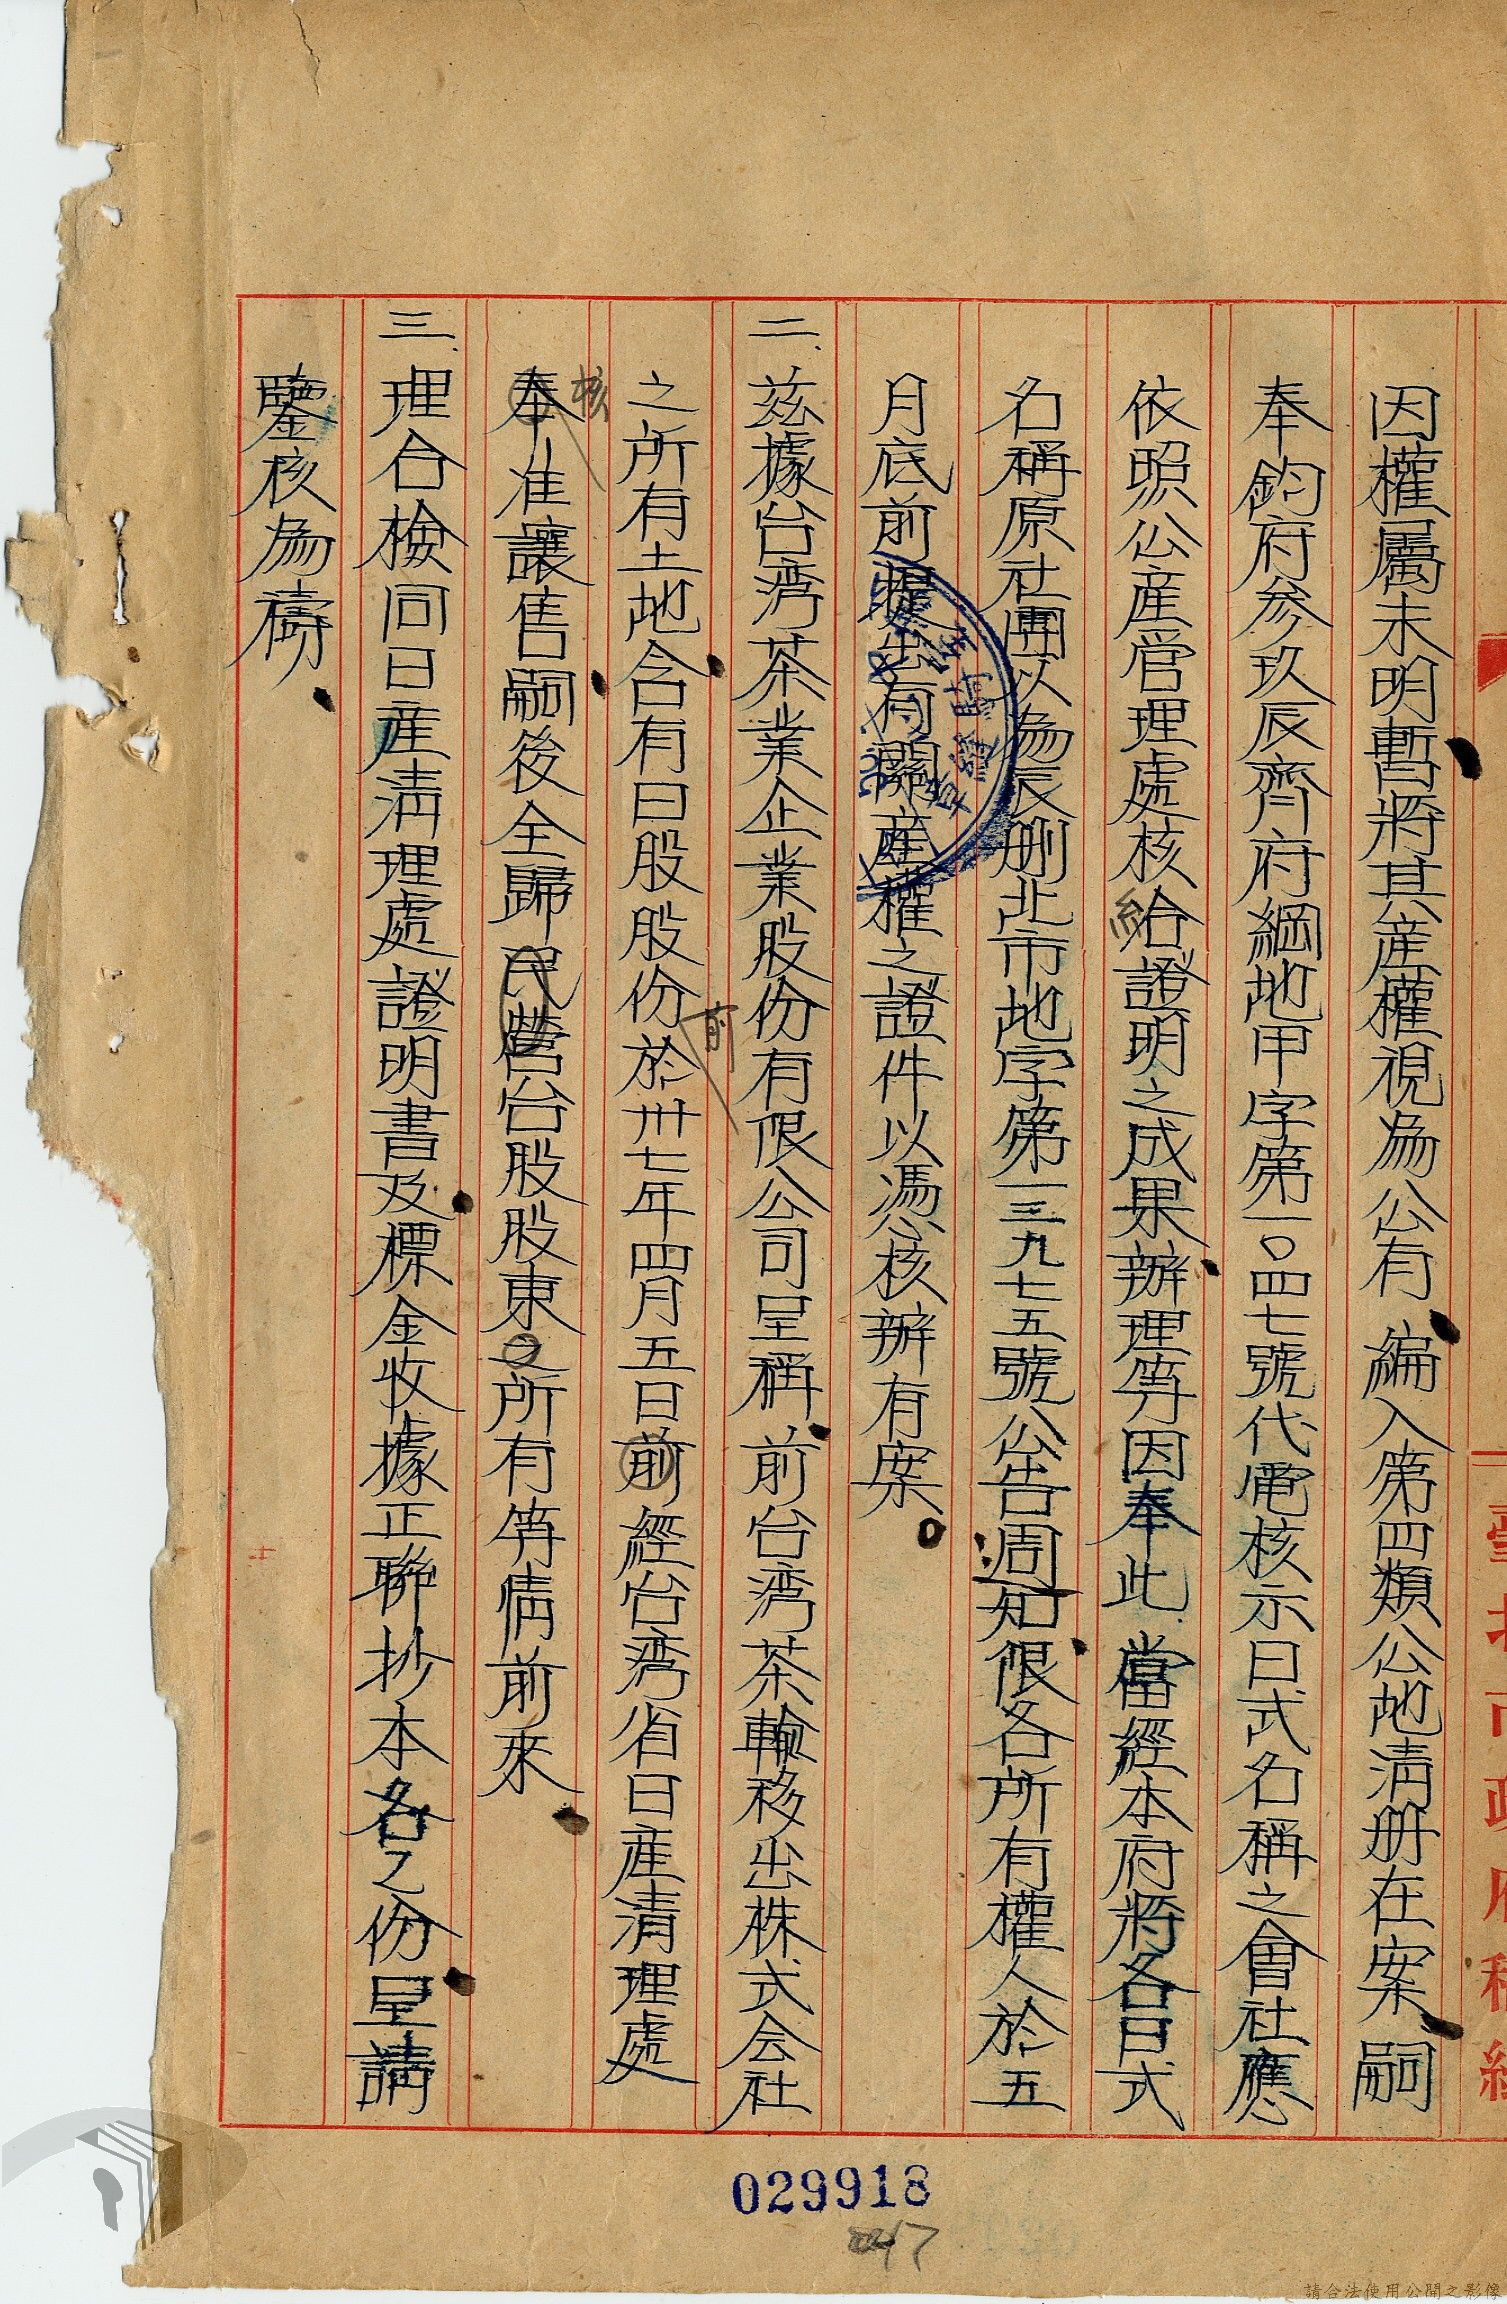 因權屬未明暫將其產權視為公有編入第四類公地清册在案嗣
奉鈞府參玖辰齊府綱地甲字第一〇四七號代電核示日式名稱之會社應
依照公產管理處核給證明之成果辦理等因奉此當經本府將各日式
名稱原社團以為辰刪北市地字第一三九七五號公告周知限各所有權人於五
月底前提出有關產權之證件以憑核辦有案。
二、茲據台湾茶業企業股份有限公司呈稱前台湾茶輸移出株式会社
之所有土地含有日股股份於卅七年四月五日前經台湾省日産清理處
前
奉准讓售嗣後全歸民營台股股東之所有等情前來
核
三、理合檢同日産清理處證明書及標金收據正聯抄本各乙份呈請
鑒核為禱
029918
請合法使用公開之影像